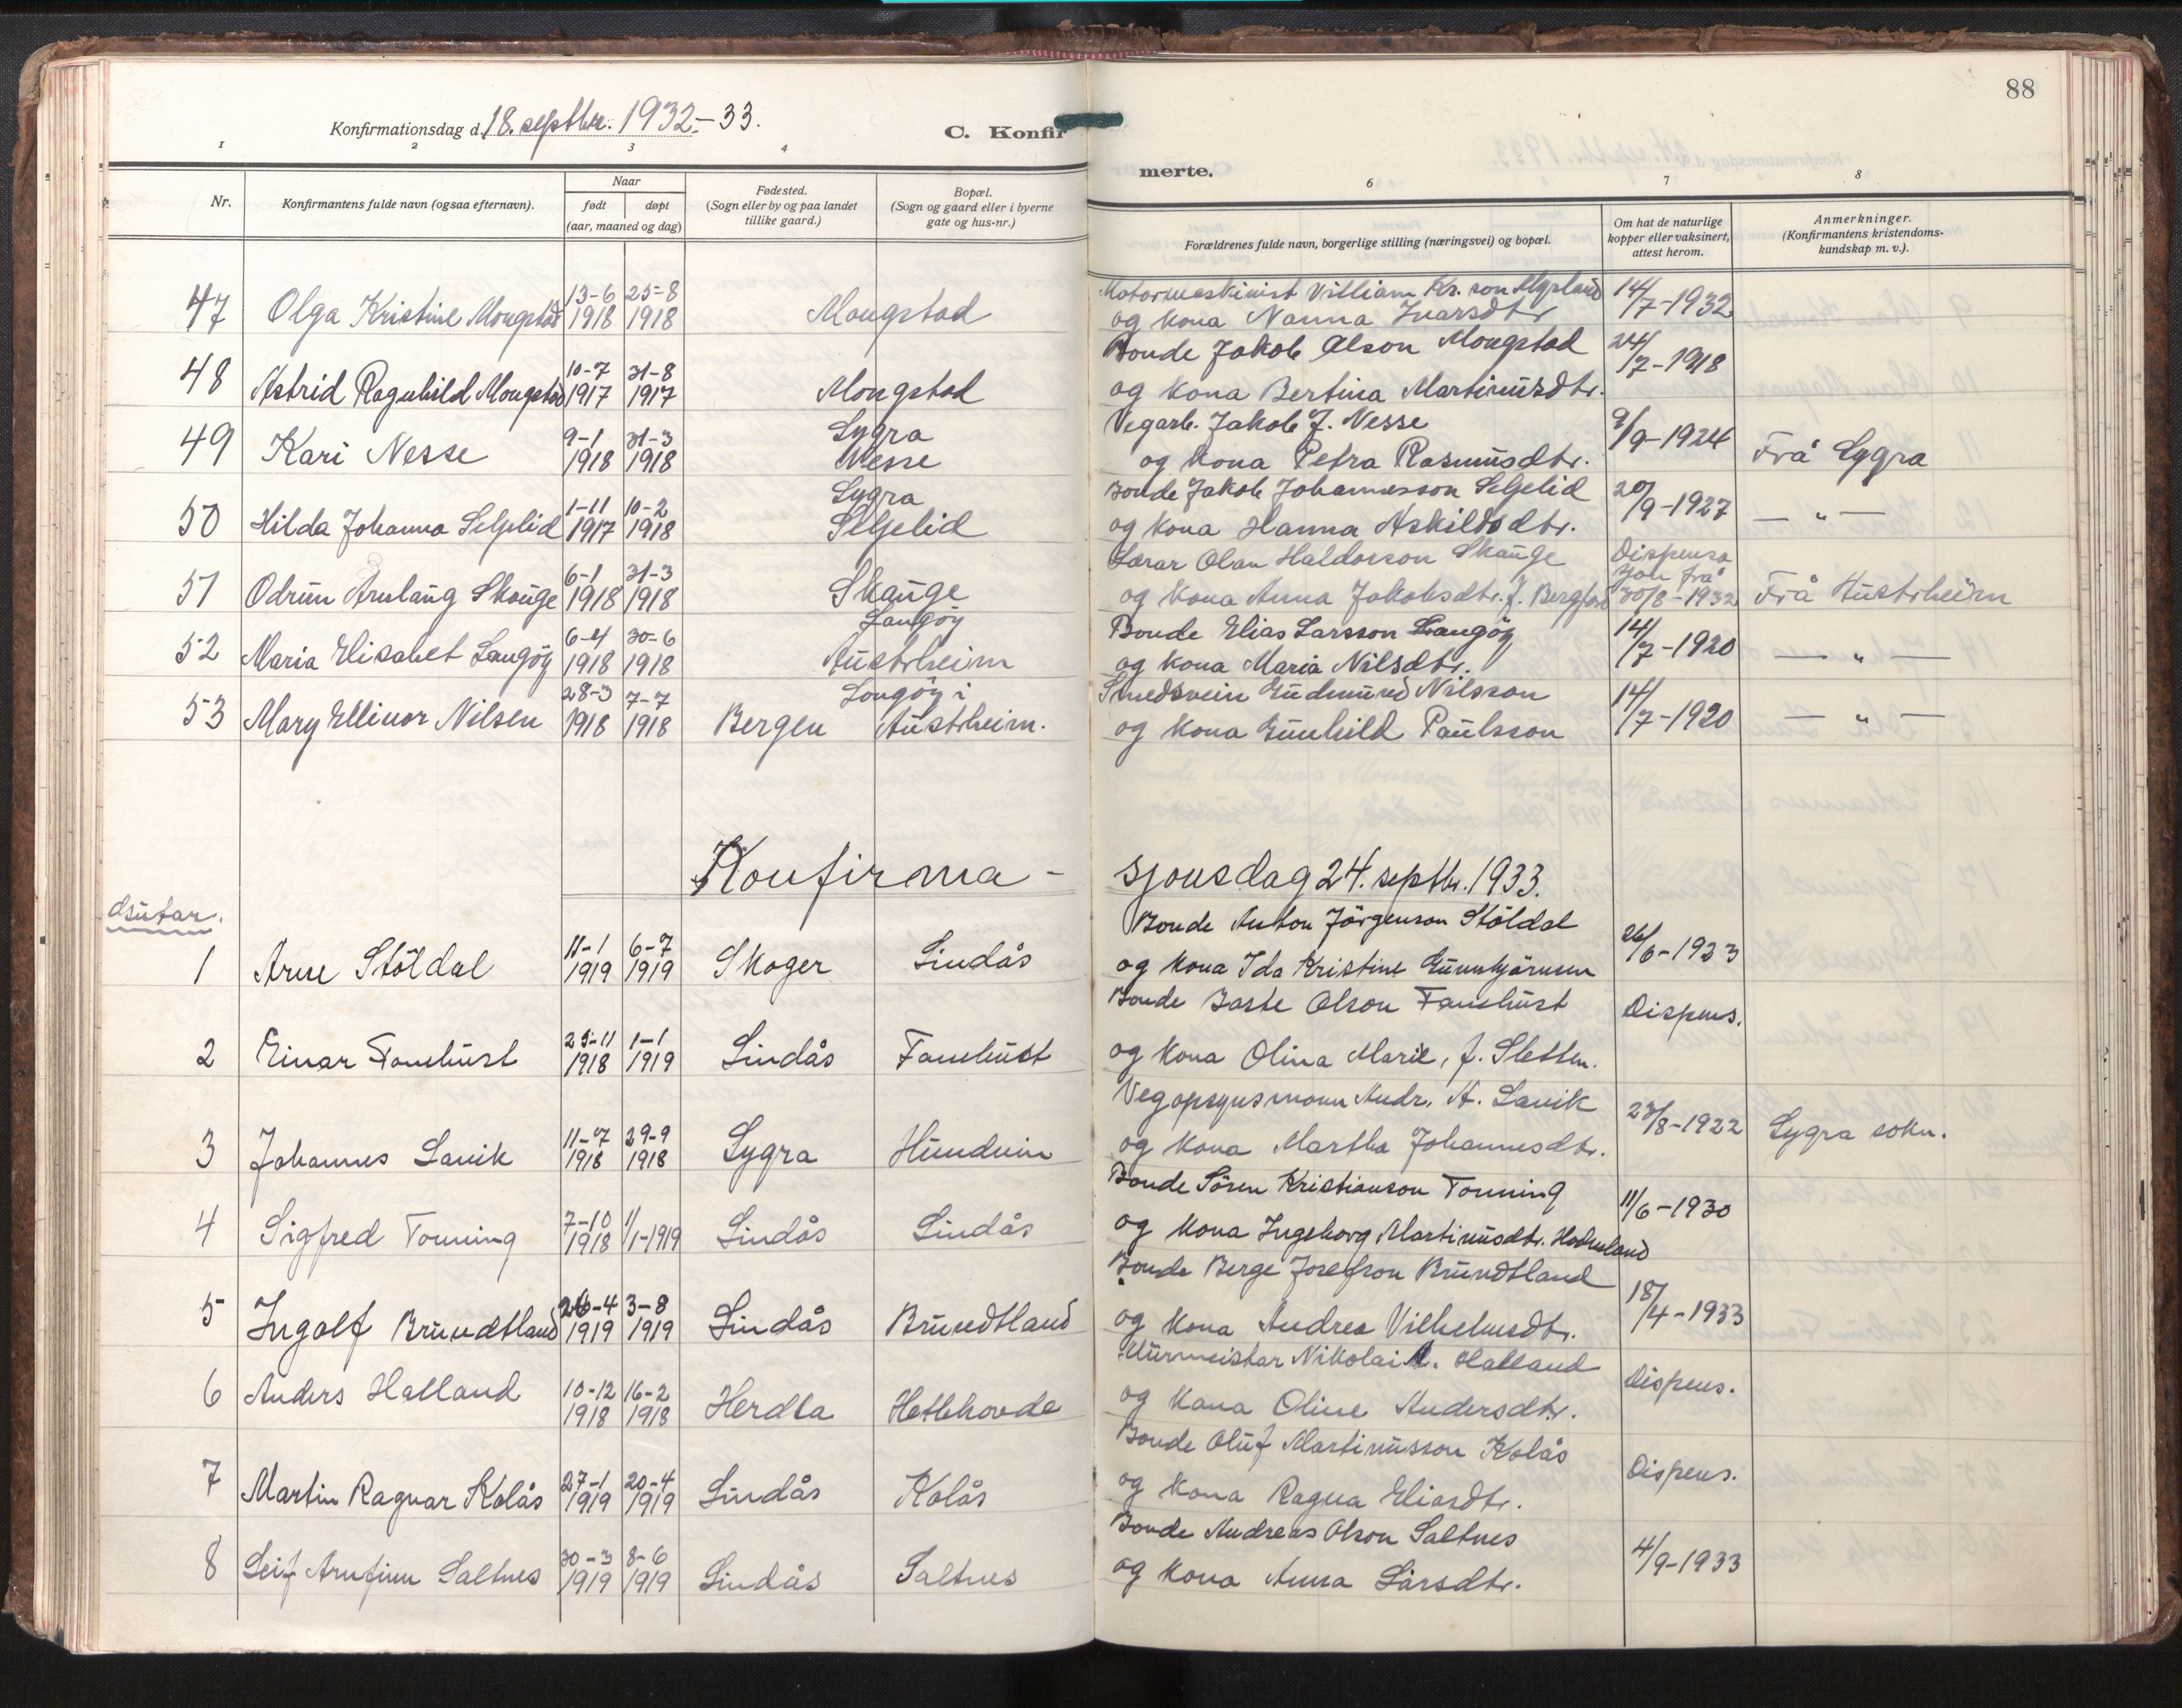 88
Konfirmationsdag d. 18. septbr. 1932.-33.
C. Konfir
merte.
1 2 3 4 6 7 8
Nr.
Konfirmantens fulde navn (ogsaa efternavn).
Naar
født døpt
(aar, maaned og dag)
Fødested.
(Sogn eller by og paa landet
tillike gaard.)
Bopæl.
(Sogn og gaard eller i byerne
gate og hus-nr.)
Forældrenes fulde navn, borgerlige stilling (næringsvei) og bopæl.
Om hat de naturlige
kopper eller vaksinert,
attest herom.
Anmerkninger.
(Konfirmantens kristendoms-
kundskap m. v.).
13-6 25-8 Motormaskinist Villiam Kr. son 14/
47 Olga Kristine Mongstad 1918 1918 Mongstad og kona Nanna Ivarsdtr 7-1932
10-7 31-8 Bonde Jakob Olson Mongstad 24/
48 Astrid Ragnhild Mongstad 1917 1917 Mongstad og kona Bertina Martinusdtr. 7-1918
9-1 31-3 Lygra Vegarb. Jakob J. Nesse 9/
49 Kari Nesse 1918 1918 Nesse og kona Petra Rasmusdtr. 9-1924 Frå Lygra
1-11 10-2 Lygra Bonde Jakob Johannesson Seljelid 20/
50 Hilda Johanna Seljelid 1917 1918 Seljelid og kona Hanna Askildsdtr. 9-1927 — " —
6-1 31-3 Lærar Olav Haldorson Skauge Dispensa
sjon frå
51 Odrun Arnlaug Skauge 1918 1918 Skauge og kona Anna Jakobsdtr. f. Bergfjord 30/8-1932 Frå Austrheim
6-4 30-6 Langöy Bonde Elias Larsson Langöy 14/
52 Maria Elisabet Langöy 1918 1918 Austrheim og kona Maria Nilsdtr. 7-1920 — " —
28-3 7-7 Langöy i Smedsvein Gudmund Nilsson 14/
53 Mary Ellinor Nilsen 1918 1918 Bergen Austrheim. og kona Gunhild Paulsson 7-1920 — " —
Konfirma-
sjonsdag 24. septbr. 1933.
Gutar.
11-1 6-7 Bonde Anton Jörgenson Stöldal 26/
1 Arne Stöldal 1919 1919 Skoger Lindås og kona Ida Kristine Gunnbjörnsen 6-1923
25-11 1-1 Bonde Baste Olson Fanehust Dispens.
2 Einar Fanehust 1918 1919 Lindås Fanehust og kona Olina Marie, f. Sletten.
11-7 29-9 Vegopsynsmann Andr. A. Lavik
3 Johannes Lavik 1918 1918 Lygra Hundvin og kona Martha Johannesdtr. 23/8-1922 Lygra sokn.
7-10 1/ Bonde Sören Kristianson Tonning
4 Sigfred Tonning 1918 1-1919 Lindås Lindås og kona Ingeborg Martinusdtr. Hodneland 11/6-1930
26-4 3-8 Bonde Berge Josefson Brundtland 18/
5 Ingolf Brundtland 1919 1919 Lindås Brundtland og kona Andrea Vilhelmsdtr. 4-1933
10-12 16-2 Murmeistar Nikolai A. Halland Dispens.
6 Anders Halland 1918 1918 Herdla Hetlehovde og kona Oline Andersdtr.
27-1 20-4 Bonde Oluf Martinusson Kolås
7 Martin Ragnar Kolås 1919 1919 Lindås Kolås og kona Ragna Eliasdtr. Dispens.
30-3 8-6 Bonde Andreas Olson Saltnes
8 Leif Arnfinn Saltnes 1919 1919 Lindås Saltnes og kona Anna Larsdtr. 4/9-1933